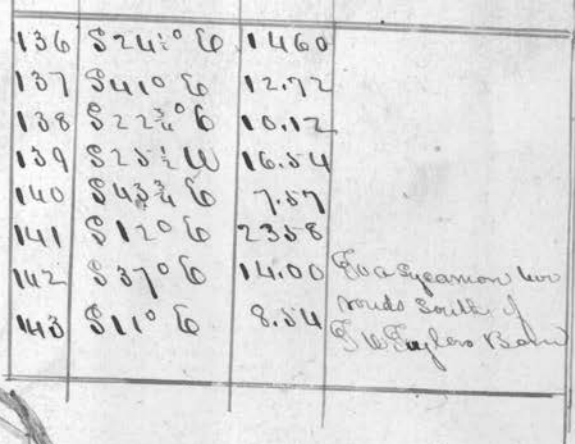 136 S24½° E 1460
137 S41° E 12.72
138 S22¾° E 10.12
139 S25½ W 16.54
140 S43¾ E 7.57
141 S12° E 2358
142 S37° E 14.00 To a Sycamon two
rouds South of
143 S11° E 8.54
Barn